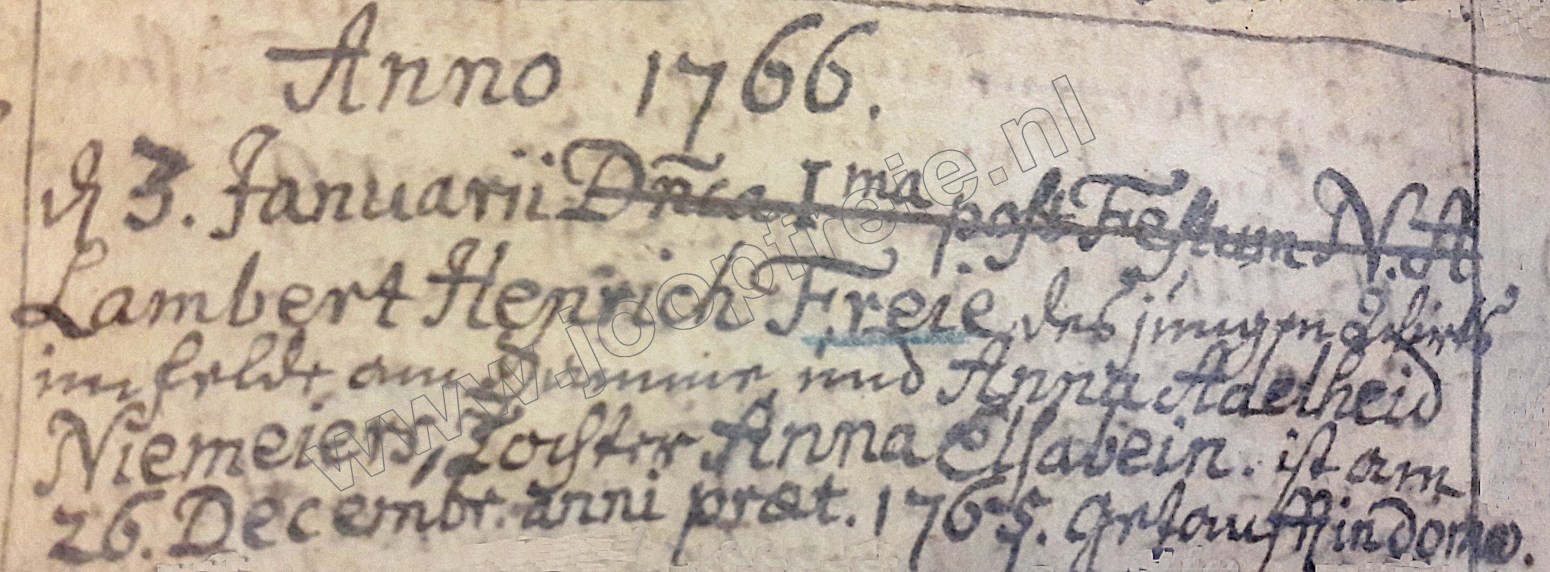 Anno 1766.
d 3. Januarii Dñca Ima post Festum N. A
Lambert Henrich Freie des jungen
im felde am Dümmer, und Anna Adelheid
Niemeiers, Tochter Anna Elsabein. ist am
26. Decembr. anni præt. 1765. getaufft in domo.
www.joopfreie.nl